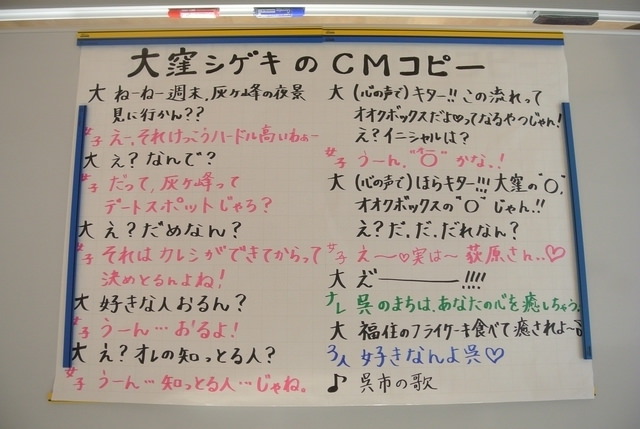 大窪シゲキのCMコピー
大 ねーねー週末、灰ヶ峰の夜景
見に行かん??
女子 えー、それけっこうハードル高いわぁー
大 え?なんで?
女子 だって、灰ヶ峰って
デートスポットじゃろ?
大 え?だめなん?
女子 それはカレシができてからって
決めとるんよね!
大 好きな人おるん?
女子 うーん…おるよ!
大 え?オレの知っとる人?
女子 うーん…知っとる人…じゃね。
大 (心の声で)キター!!この流れって
オオクボックスだよ♡ってなるやつじゃん!
え?イニシャルは?
女子 うーん、"O"かな、!
大 (心の声で)ほらキター!!!大窪の"O"、
オオクボックスの"O"じゃん!!
え?だ、だ、だれなん?
女子 え〜♡実は〜荻原さん、、♡
大 え゛ー!!!!
ナレ 呉のまちは、あなたの心を癒しちゃう。
大 福住のフライケーキ食べて癒されよ〜
3人 好きなんよ呉♡
♪ 呉市の歌